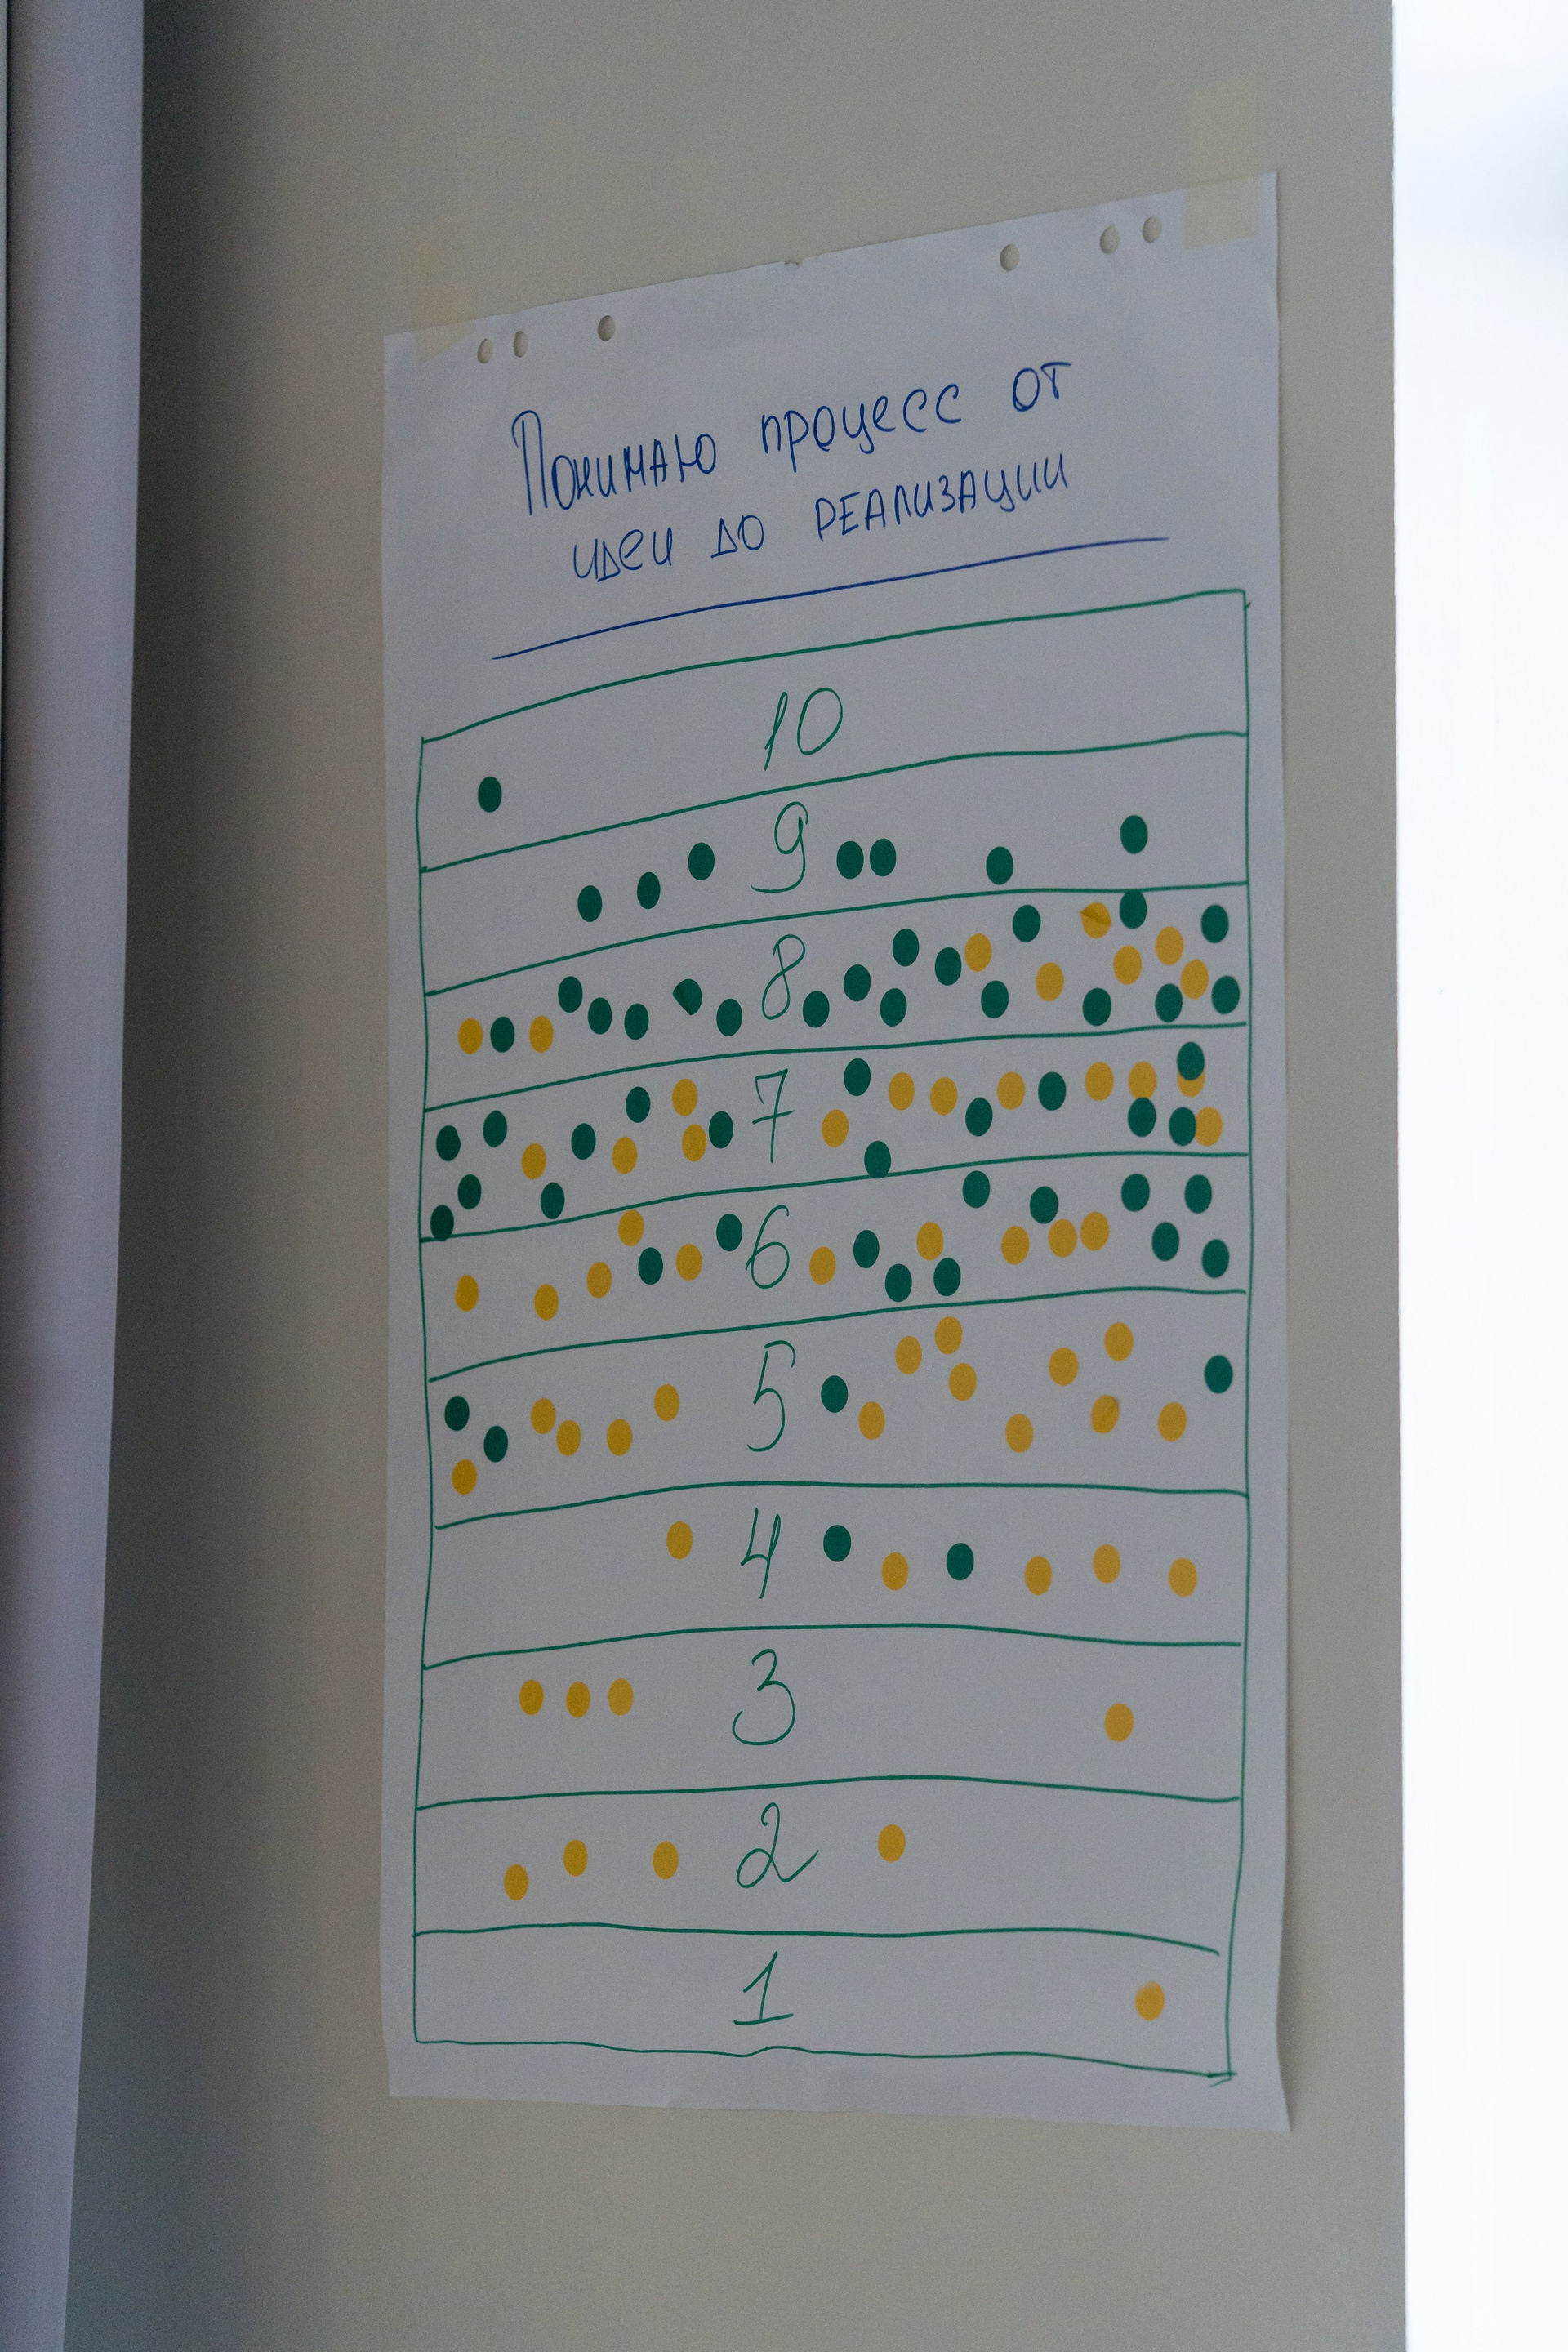 Понимаю процесс от
идеи до РЕАЛИЗАЦИИ
10
9
8
7
6
5
4
3
2
1